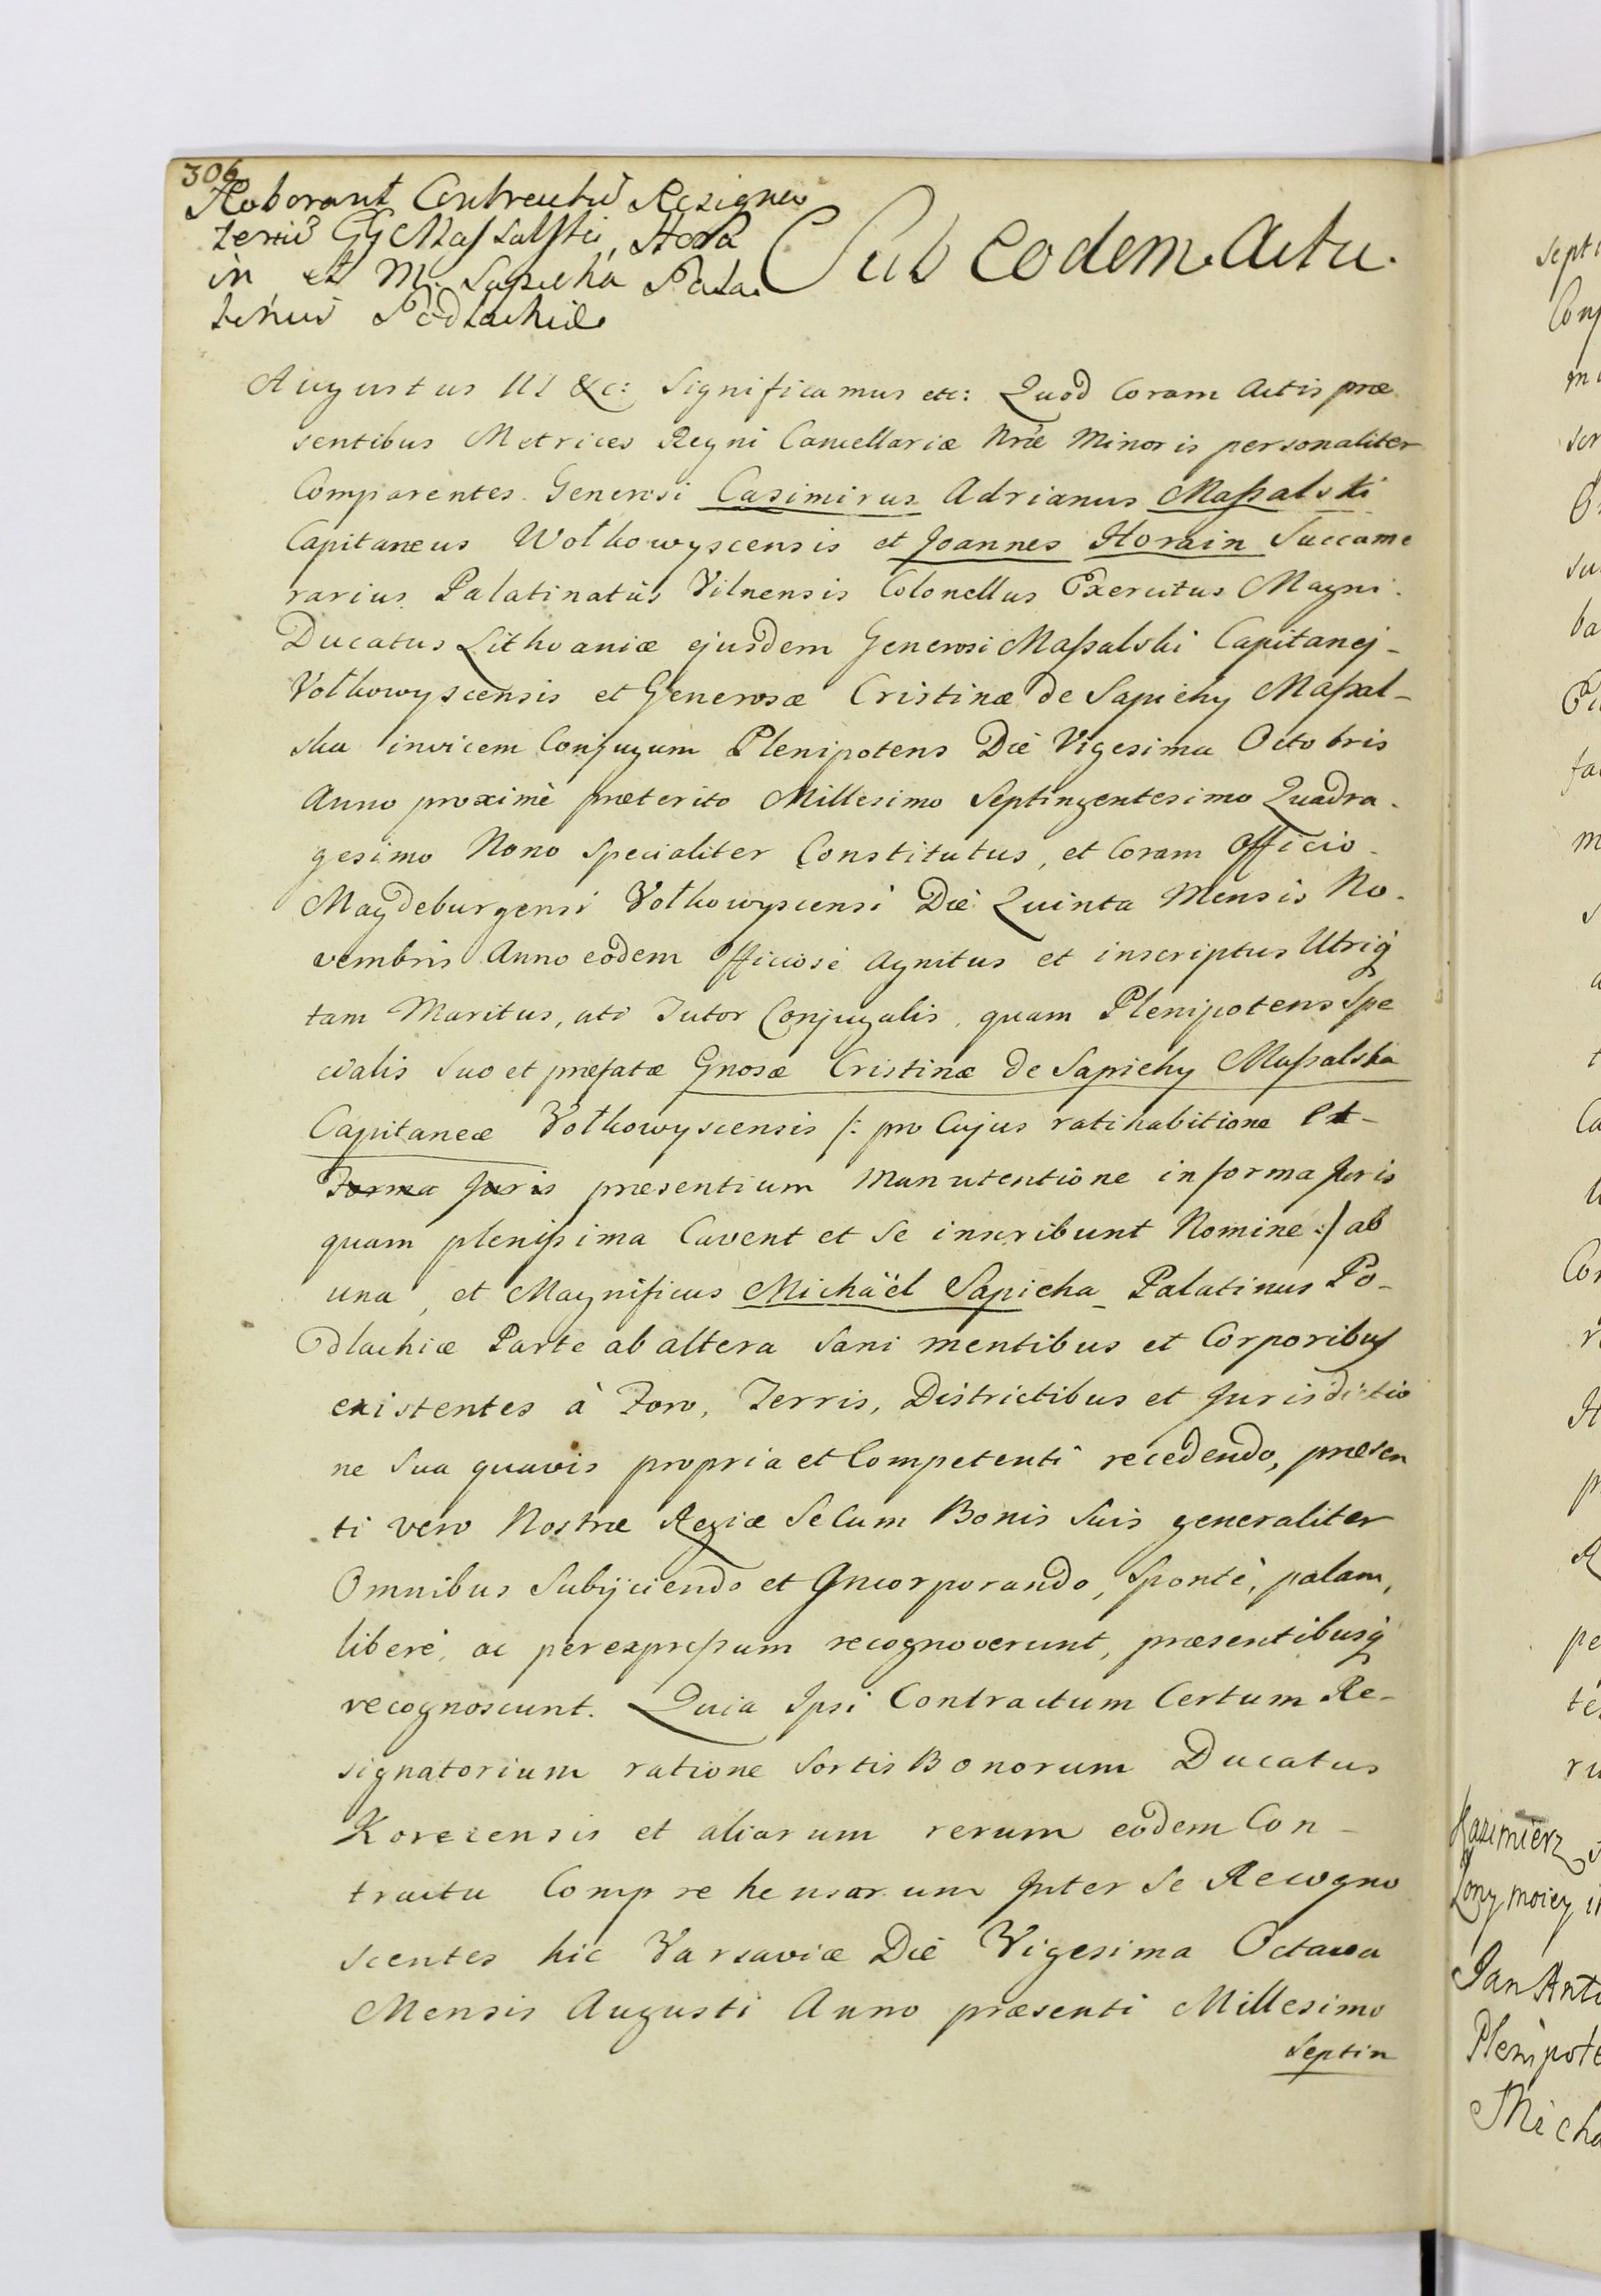 306
Roborant Contractū Resigna
toriū GG Massalski, Hora
in et M. Sapieha Pala
tinus Podlachiæ
Sub eodem Actu.
Augustus III &c: Significamus etc: Quod Coram Actis præ
sentibus Metrices Regni Cancellariæ Nræ Minoris personaliter
Comparentes Generosi Casimirus Adrianus Maſsalski
Capitaneus Wołkowyscensis et Joannes Horain Succame
rarius Palatinatûs Vilnensis Colonellus Exercitus Magni
Ducatus Lithvaniæ ejusdem Generosi Maſsalski Capitanej-
Vołkowyscensis et Generosæ Cristinæ de Sapiehy Maſsal-
ska invicem Conjugum Plenipotens Diè Vigesima Octobris
Anno proximè præterito Millesimo Septingentesimo Quadra-
gesimo Nono Specialiter Constitutus, et Coram Officio
Magdeburgensi Vołkowyscensi Diè Quinta Mensis No-
vembris Anno eodem Officiosè Agnitus et inscriptus Utriq
tam Maritus, uti Tutor Conjugalis, quam Plenipotens Spe
cialis Suo et præfatæ Gnosæ Cristinæ de Sapiehy Maſsalska
Capitaneæ Vołkowyscensis /: pro Cujus ratihabitione et-
Forma Juris præsentium Manutentione in forma Juris
quam pleniſsima Cavent et Se inscribunt Nomine :/ ab
una, et Magnificus Michäèl Sapieha Palatinus Po-
dlachiæ Parte ab altera Sani mentibus et Corporibus
existentes à Foro, Terris, Districtibus et Jurisdictio
ne Sua quavis propria et Competenti recedendo, præsen
ti vero Nostræ Regiæ Se Cum Bonis Suis generaliter
Omnibus Subijciendo et Incorporando, Spontè, palam,
liberè, ac per expreſsum recognoverunt, præsentibusq
recognoscunt. Quia Ipsi Contractum Certum Re-
signatorium ratione Sortis Bonorum Ducatus
Korecensis et aliarum rerum eodem Con-
tractu Comprehensarum Inter Se Recogno
scentes hic Varsaviæ Diè Vigesima Octava
Mensis Augusti Anno præsenti Millesimo
Septin
Kazimierz
Jan Anto
Plenipote
Micha